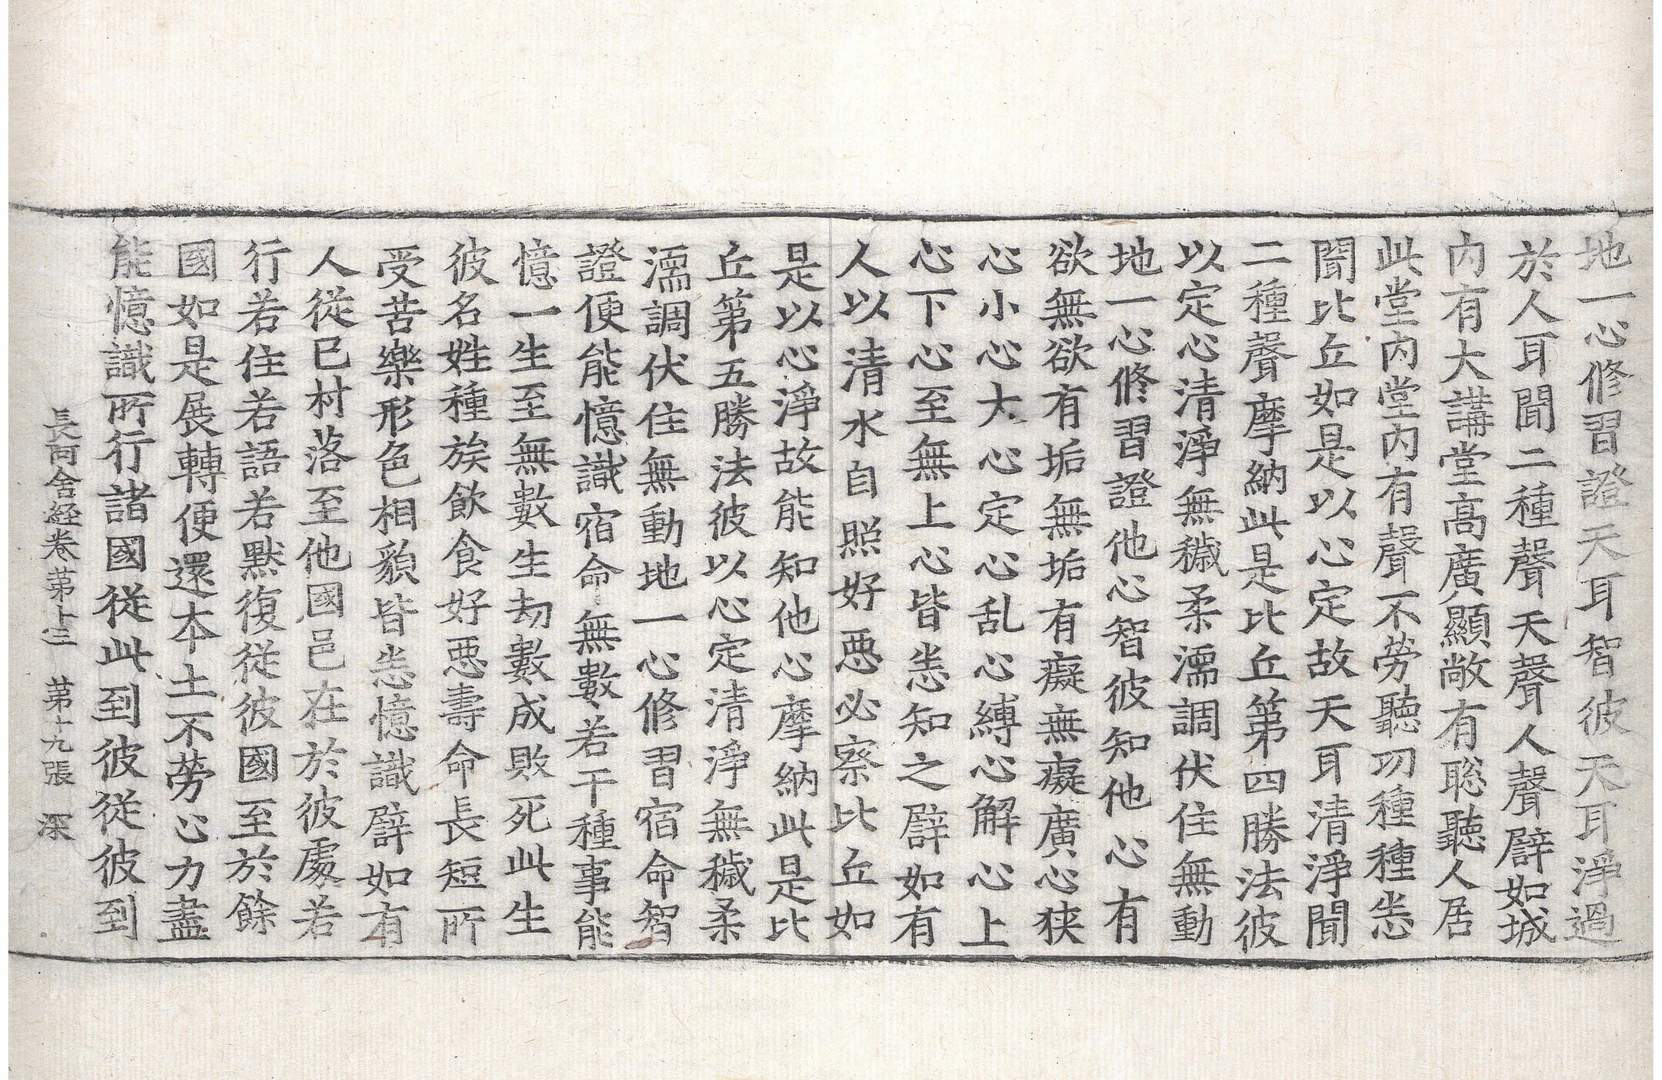 地一心修習證天耳智彼天耳淨過
於人耳聞二種聲天聲人聲譬如城
內有大講堂高廣顯敞有聡聽人居
此堂內堂內有聲不勞聽功種種悉
聞比丘如是以心定故天耳清淨聞
二種聲摩納此是比丘第四勝法彼
以定心清淨無穢柔濡調伏住無動
地一心修習證他心智彼知他心有
欲無欲有垢無垢有癡無癡廣心狹
心小心大心定心乱心縛心解心上
心下心至無上心皆悉知之譬如有
人以清水自照好惡必察比丘如
是以心淨故能知他心摩納此是比
丘第五勝法彼以心定清淨無穢柔
濡調伏住無動地一心修習宿命智
證便能憶識宿命無數若干種事能
憶一生至無數生劫數成敗死此生
彼名姓種族飲食好惡壽命長短所
受苦樂形色相貌皆悉憶識譬如有
人從已村落至他國邑在於彼處若
行若住若語若默復從彼國至於餘
國如是展轉便還本土不勞心力盡
能憶識所行諸國從此到彼從彼到
長阿含經卷第十三 第十九張 深